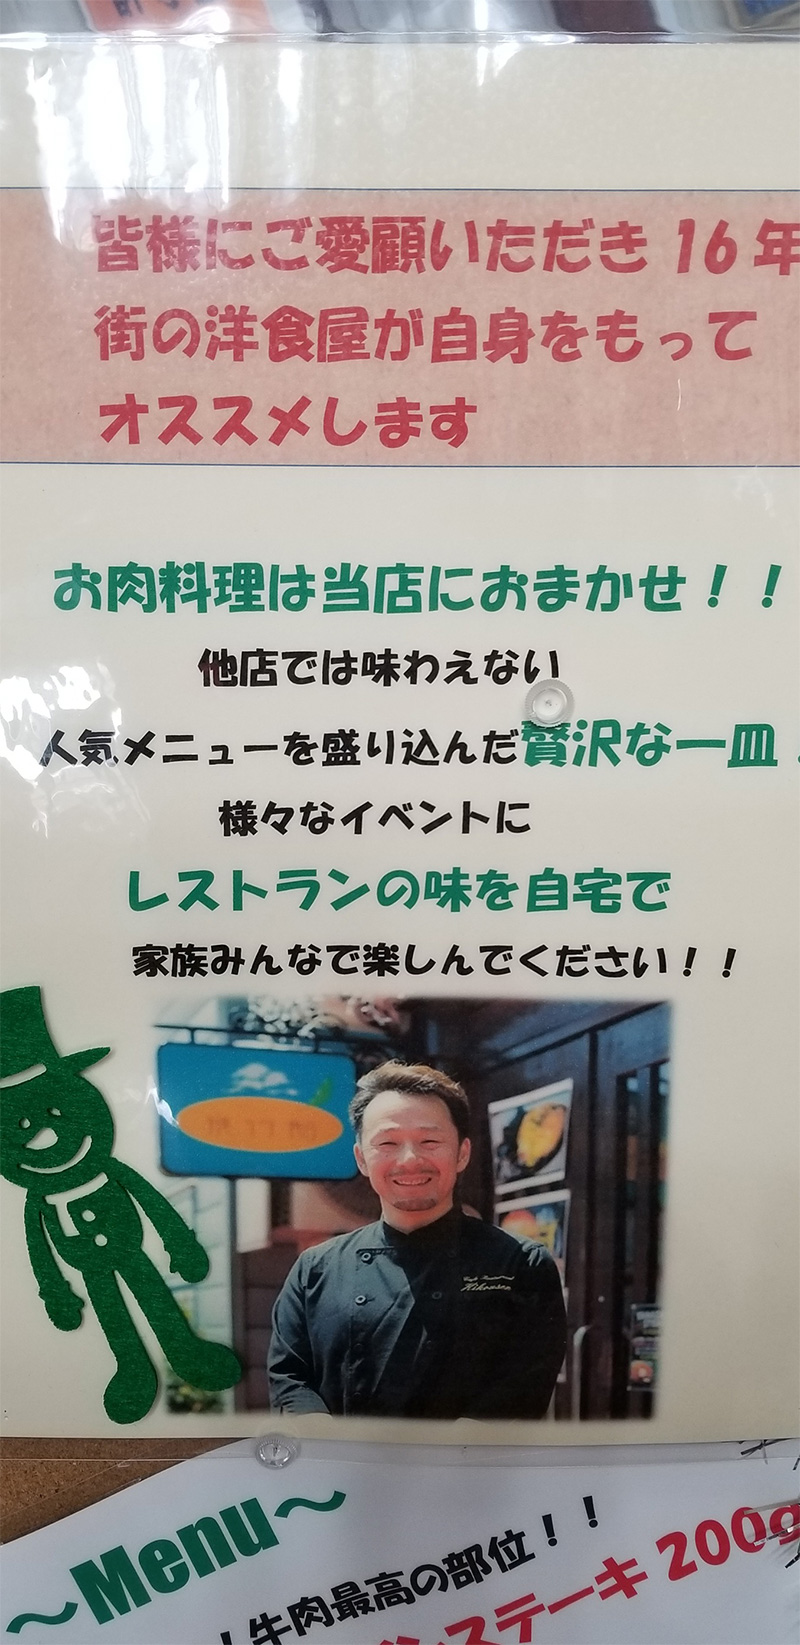 皆様にご愛顧いただき16年
街の洋食屋が自身をもって
オススメします
お肉料理は当店におまかせ！！
他店では味わえない
人気メニューを盛り込んだ贅沢な一皿！
様々なイベントに
レストランの味を自宅で
家族みんなで楽しんでください！！
～Menu～
牛肉最高の部位！！
ステーキ 200g